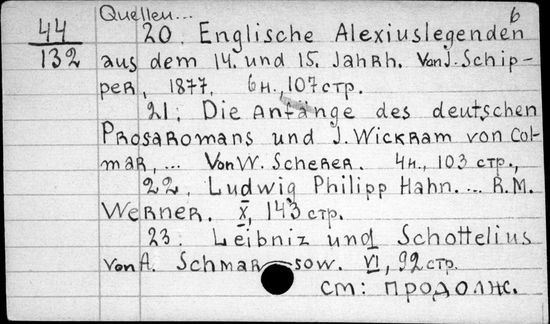 Quellen... 6
44 20. Englische Alexiuslegenden
132 aus dem 14. und 15. Jahrh. Von J. Schip-
per, 1877. 6н., 107 стр.
21. Die Anfänge des deutschen
Prosaromans und J. Wickram von Col-
mar, ... Von W. Scherer. 4н., 103 стр.,
22. Ludwig Philipp Hahn. ... R.M.
Werner. X, 143 стр.
23. Leibniz und Schottelius
von A. Schmarsow. VI, 92 стр.
см: продолж.